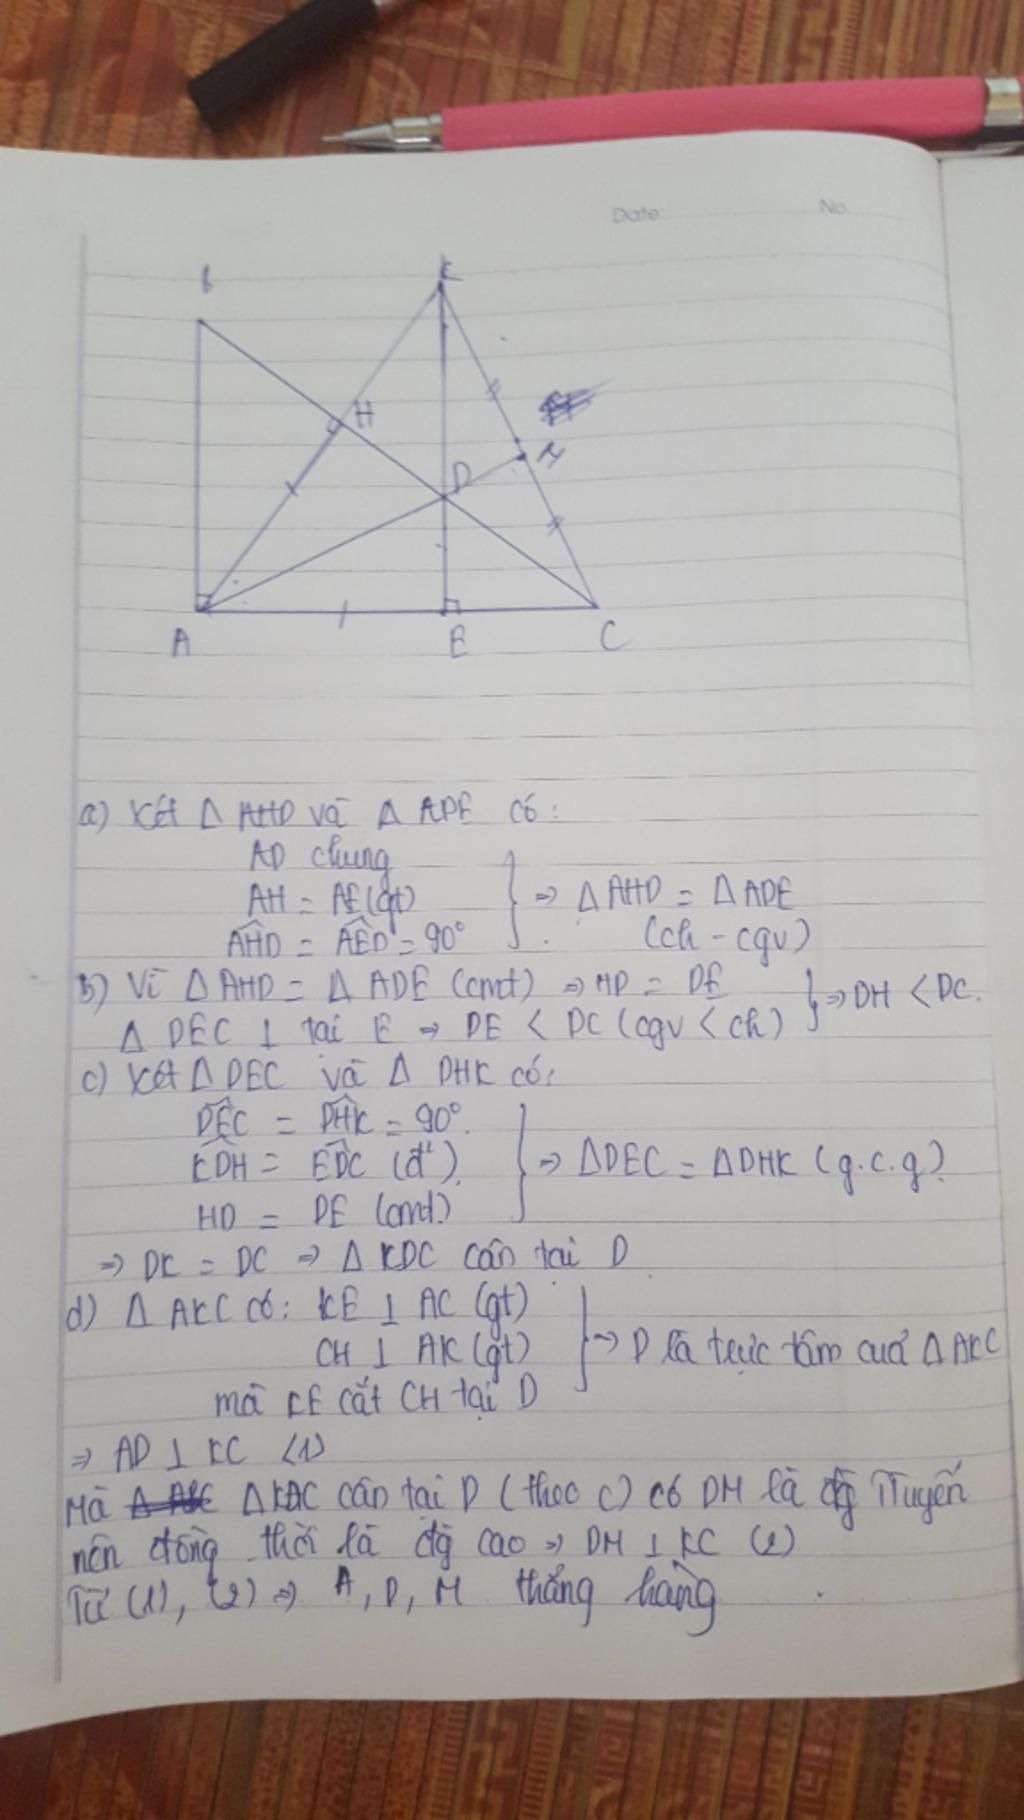 Date No
B K
H
M
D
A E C
a) Xét Δ AHD và Δ ADE có:
AD chung
AH = AE (gt)
AHD = AED = 90°
⇒ Δ AHD = Δ ADE
(ch - cgv)
b) Vì Δ AHD = Δ ADE (cmt) ⇒ HD = DE
Δ DEC ⊥ tại E ⇒ DE < DC (cgv < ch)
⇒ DH < DC.
c) Xét Δ DEC và Δ DHK có:
DEC = DHK = 90°
KDH = EDC (đ²)
HD = DE (cmt)
⇒ ΔDEC = ΔDHK (g.c.g)
⇒ DK = DC ⇒ Δ KDC cân tại D
d) Δ AKC có: KE ⊥ AC (gt)
CH ⊥ AK (gt)
mà KE cắt CH tại D
⇒ D là trực tâm của Δ AKC
⇒ AD ⊥ KC (1)
Mà ΔKDC cân tại D (theo c) có DM là đg Tuyến
nên đồng thời là đg cao ⇒ DM ⊥ KC (2)
Từ (1), (2) ⇒ A, D, M thẳng hàng